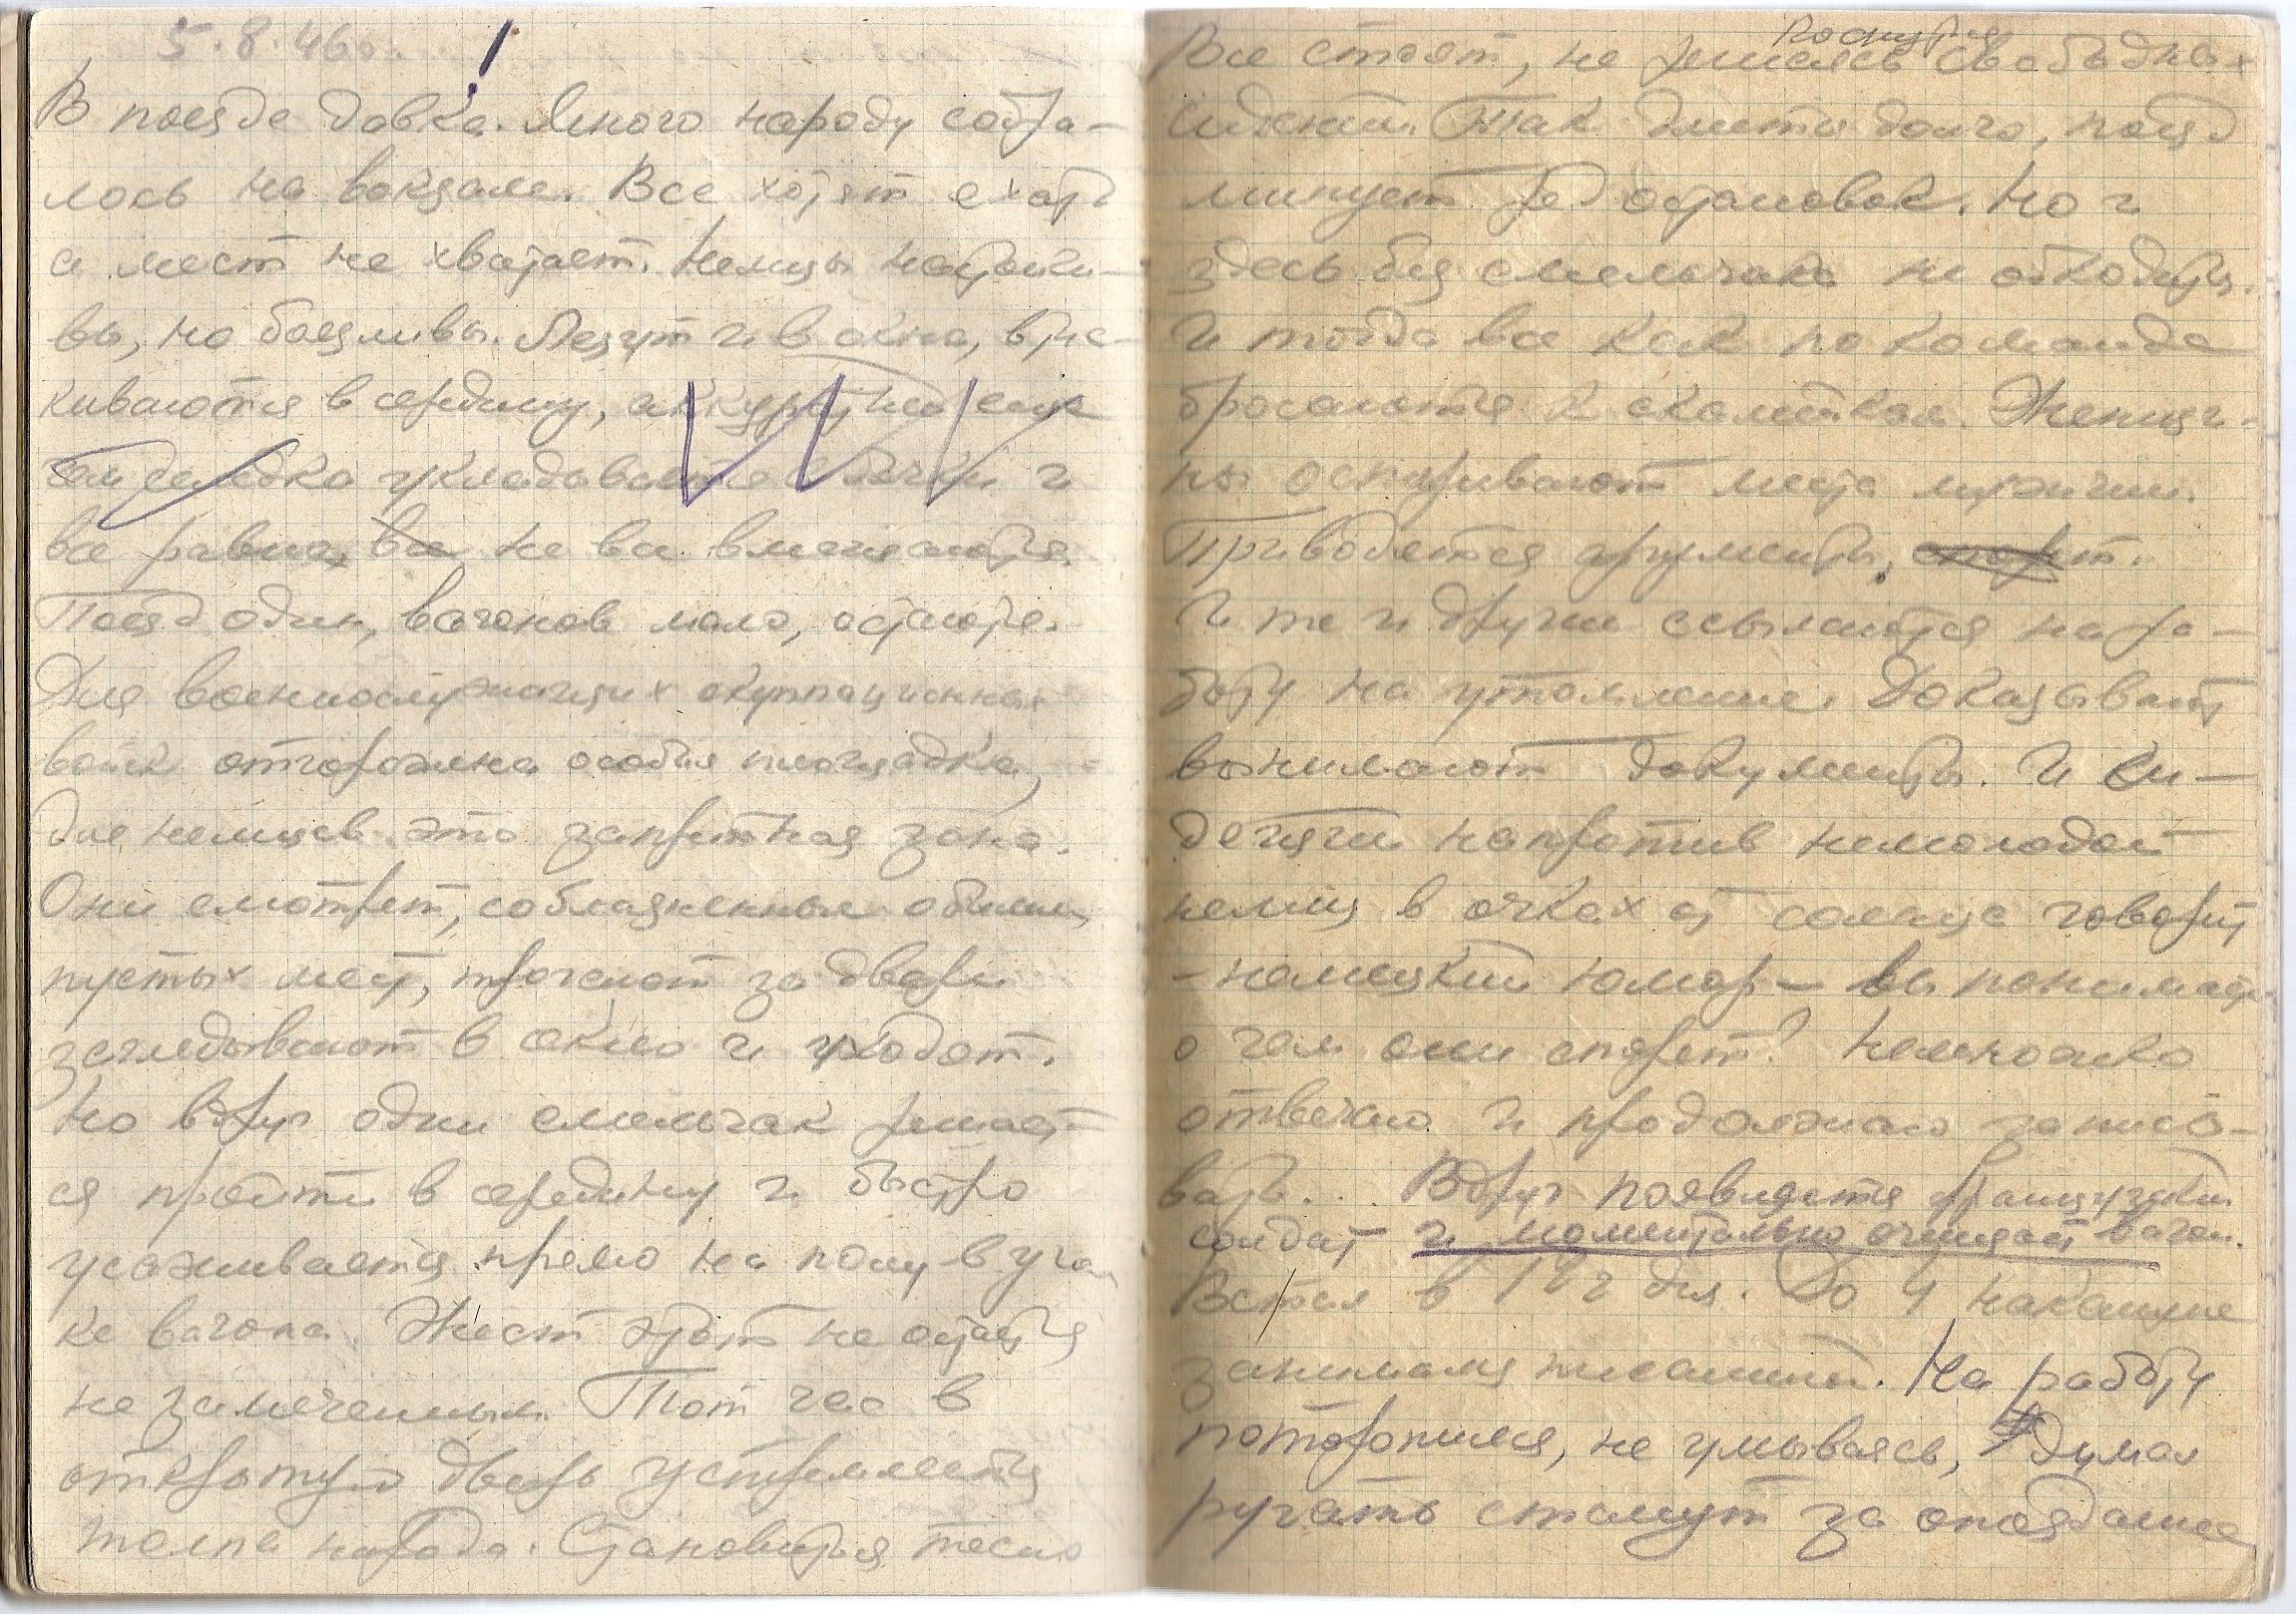 5.8.46г.
В поезде давка. Много народу собра-
лось на вокзале. Все хотят ехать
а мест не хватает. Немцы настойчи-
вы, но боязливы. Лезут и в окна, втис-
киваются в середину, аккуратно, еще
как селедка укладываются в бочки и
все равно, все не все вмещаются.
Поезд один, вагонов мало, остаюся.
Для военнослужащих оккупационных
войск отгорожена особая площадка,
для немцев это запретная зона.
Они смотрят, соблазненные обилием
пустых мест, трогают за двери
заглядывают в окно и уходят.
Но вдруг один смельчак решает-
ся пройти в середину и быстро
усаживается прямо на полу в угол
ке вагона. Жест этот не остается
не замеченным. Тот час в
открытую дверь устремляется
толпа народа. Становится тесно
Все стоят, не решаясь коснуться свободных
сидений. Так длится долго, поезд
минует ряд остановок. Но и
здесь без смельчака не обходится.
И тогда все как по команде
бросаются к скамейкам. Женщи-
ны оспаривают места мужчин.
Приводятся аргументы, спорят.
И те и другие ссылаются на ра-
боту на утомление. Доказывают
вынимают документы. И си-
дящий напротив немолодой
немец в очках от солнца говорит
- немецкий юмор - вы понимаете
о чем они спорят? Немножко
отвечаю и продолжаю записы-
вать... Вдруг появляется французский
солдат и моментально очищает вагон.
Встал в 12 ч дня. До 4 накануне
занимался писаниной. На работу
поторопился, не умываясь, думал
ругать станут за опоздание